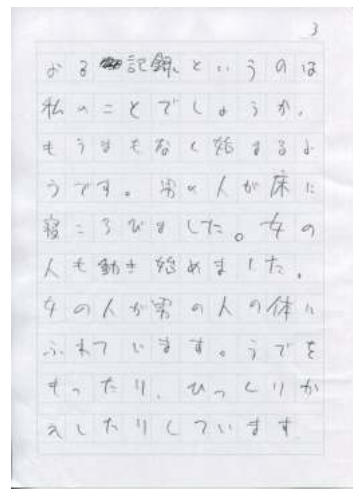 3
よる記録というのは
私のことでしょうか。
もうまもなく始まるよ
うです。男の人が床に
寝ころびました。女の
人も動き始めました。
女の人が男の人の体に
ふれています。うでを
もったり、ひっくりか
えしたりしています